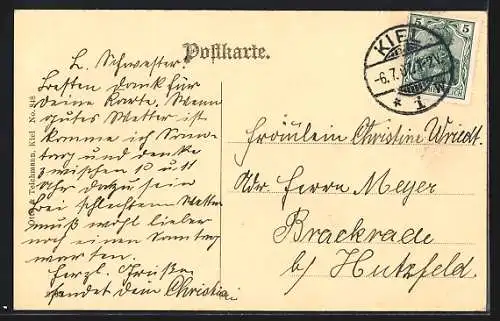 Postkarte.
L. Schwester!
Besten Dank für
deine Karte. Wenn
gutes Wetter ist
komme ich Sonn-
tag und denke
zwischen 10 u 11
Uhr da zu sein
bei schlechtem Wetter
muß wohl lieber
noch einen Sonntag
warten.
Herzl. Grüße
sendet dein Christian
Teichmann, Kiel No.
KIEL
-6.7.07.1-2
* 1
5 5
Fräulein Christine Wriedt.
Adr Herrn Meyer
Brackrade
b/ Hutzfeld.